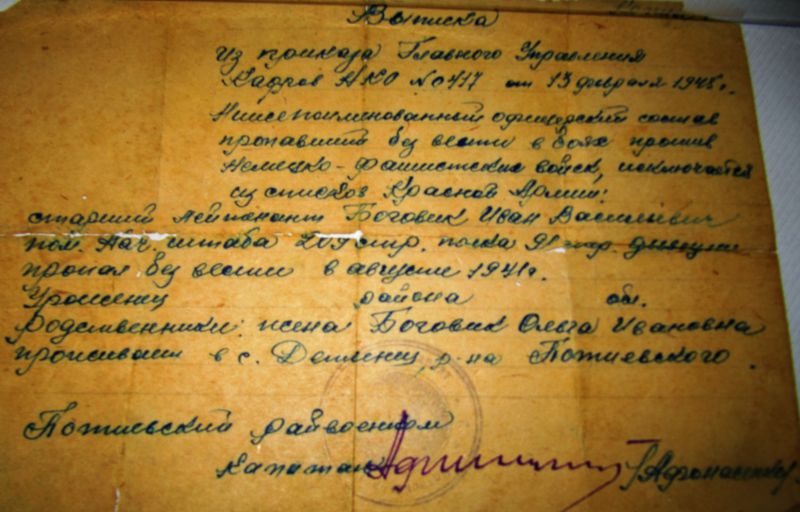 Выписка
из приказа Главного Управления
Кадров НКО № 0417 от 13 февраля 1945 г.
Нижепоименованный офицерский состав
пропавший без вести в боях против
немецко-фашистских войск, исключается
из списков Красной Армии:
старший лейтенант Боговик Иван Васильевич
пом. нач. штаба стр. полка стр. дивизии
пропал без вести в августе 1941 г.
Уроженец района обл.
Родственники: жена Боговик Ольга Ивановна
проживает в с. р-на Потиевского.
Потиевский райвоенком
капитан